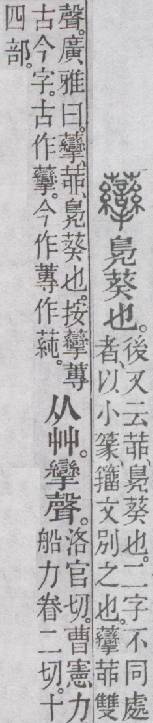 虊鳧葵也。
後又云茆、鳧葵也。二字不同處
者、以小篆籒文別之也。虊茆雙
聲。廣雅曰。虊、茆、鳧葵也。按虊蓴
古今字。古作虊。今作蓴作蒓。
从艸。攣聲。
洛官切。曹憲力
船力卷二切。十
四部。